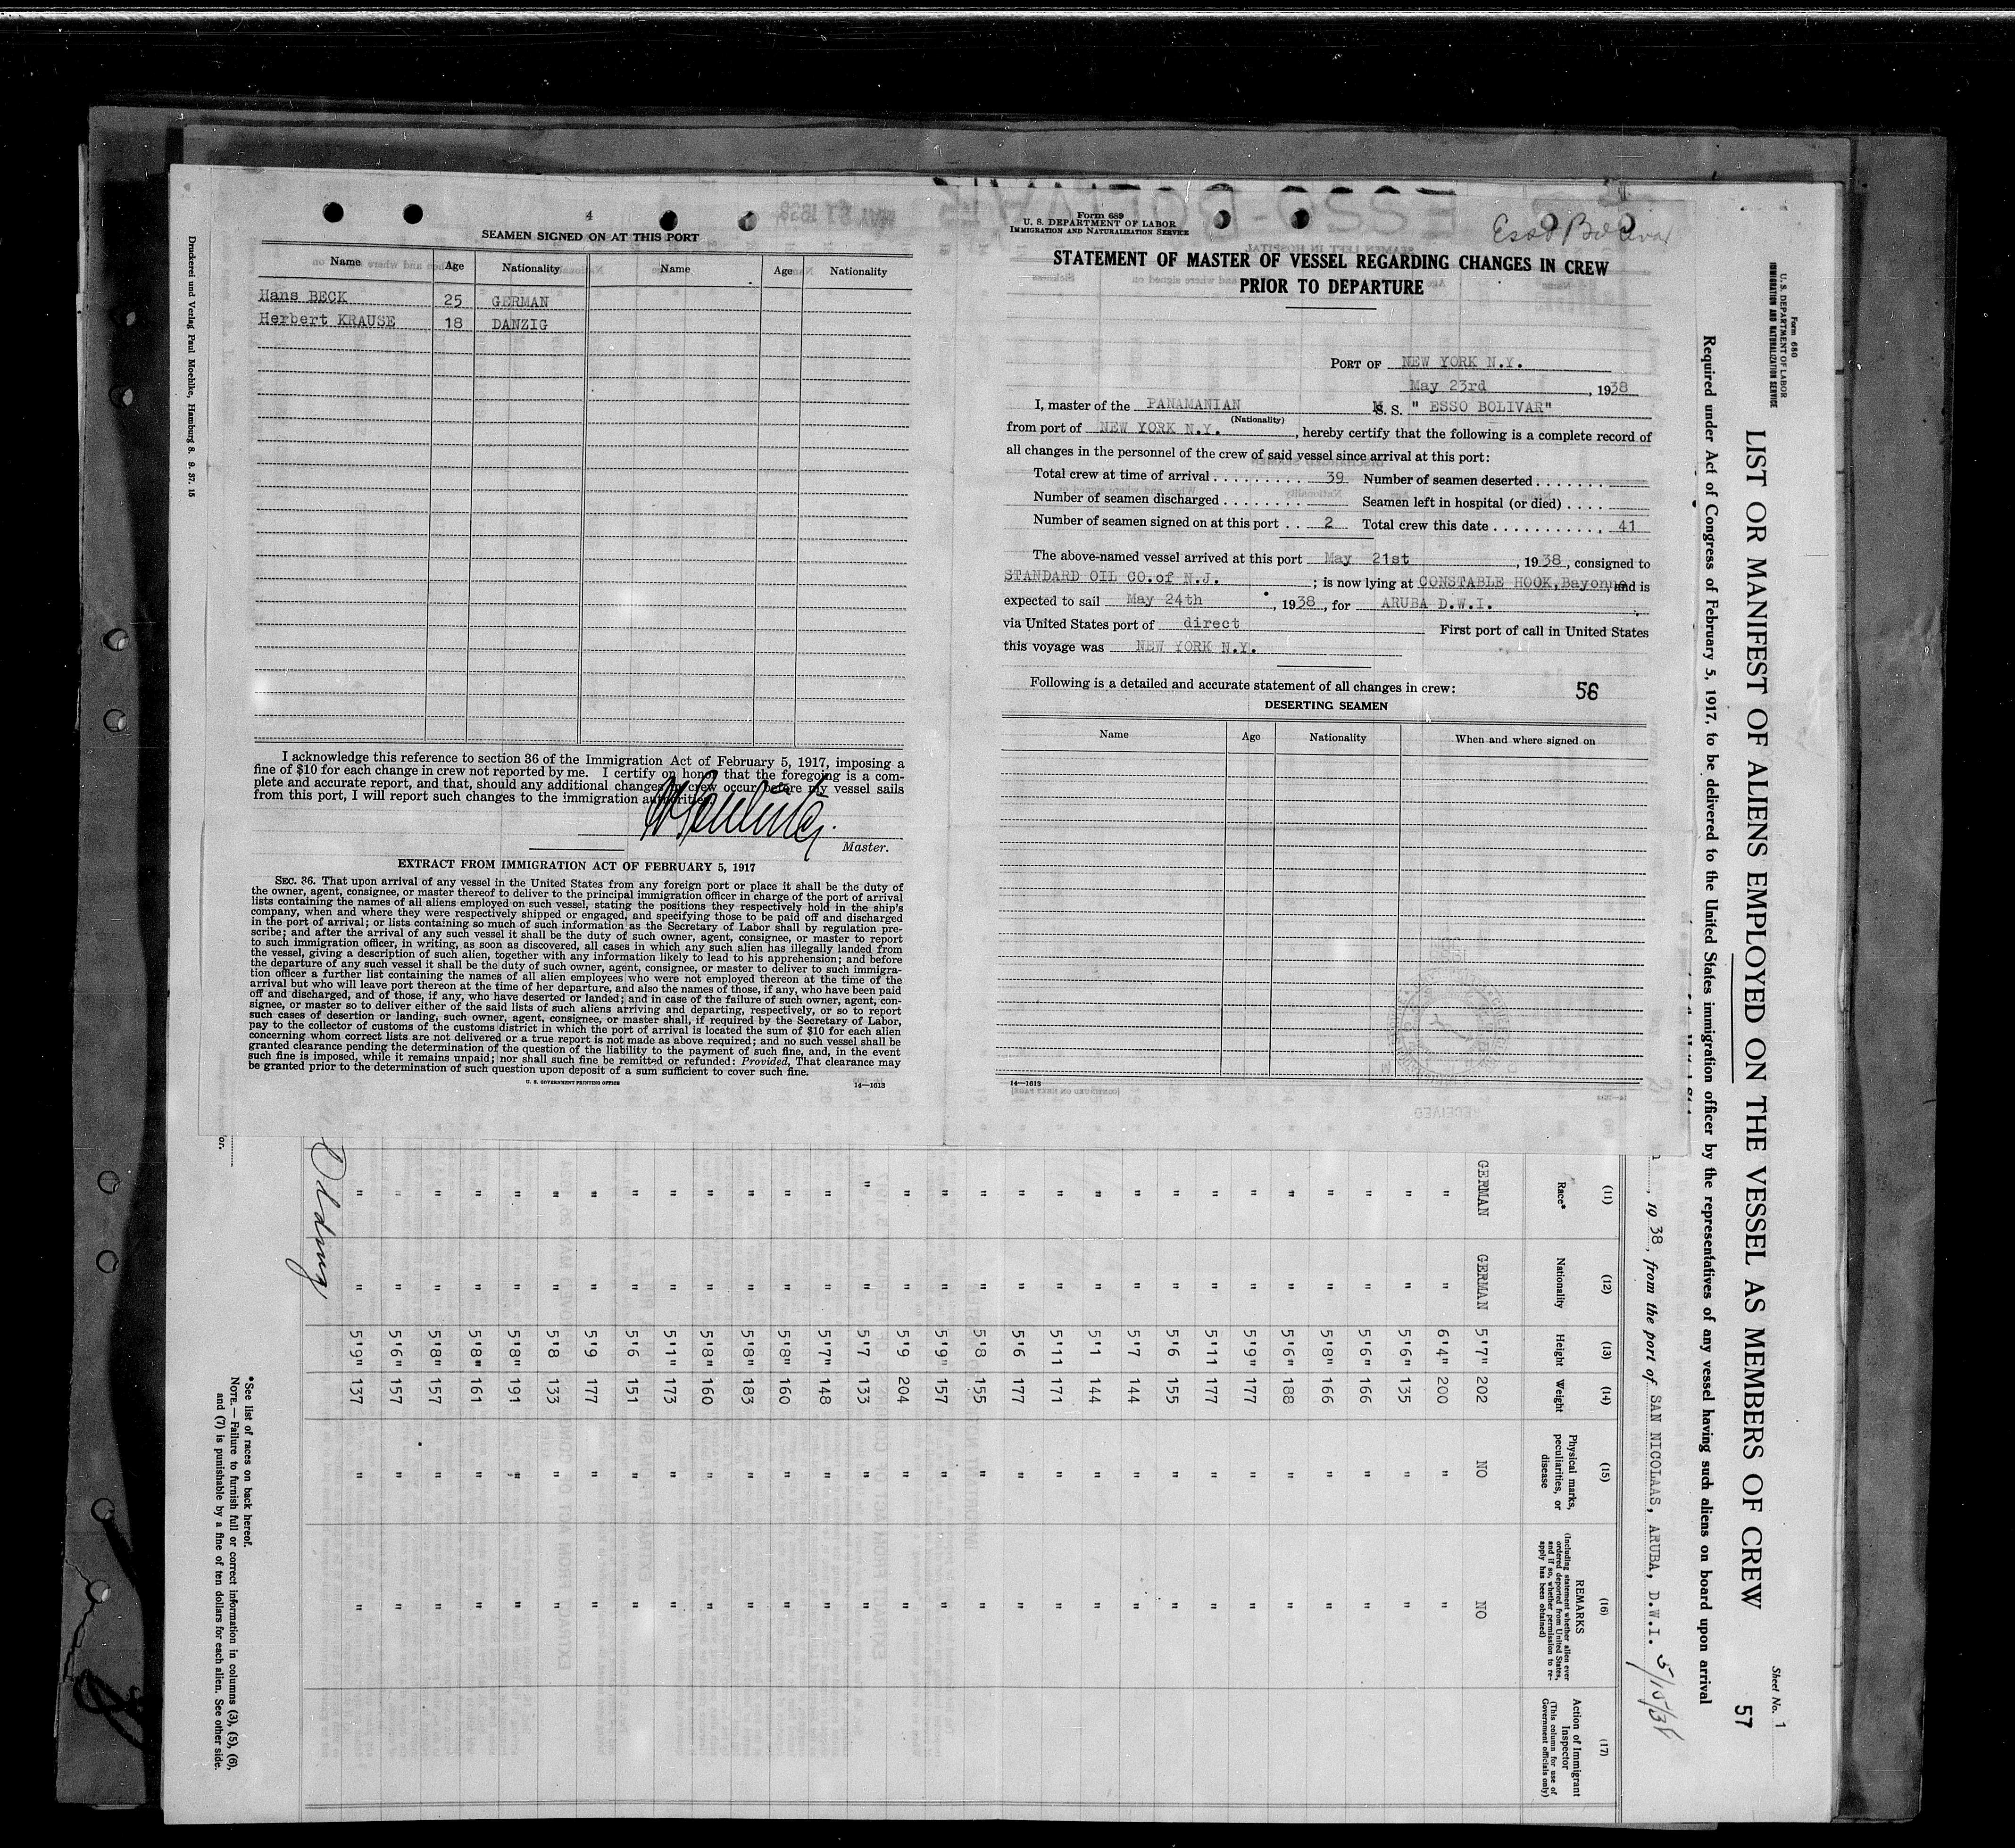 4
SEAMEN SIGNED ON AT THIS PORT
Name Age Nationality Name Age Nationality
Hans BECK 25 GERMAN
Herbert KRAUSE 18 DANZIG
I acknowledge this reference to section 36 of the Immigration Act of February 5, 1917, imposing a
fine of $10 for each change in crew not reported by me. I certify on honor that the foregoing is a com-
plete and accurate report, and that, should any additional changes in crew occur before my vessel sails
from this port, I will report such changes to the immigration authorities.
Master.
EXTRACT FROM IMMIGRATION ACT OF FEBRUARY 5, 1917
SEC. 36. That upon arrival of any vessel in the United States from any foreign port or place it shall be the duty of
the owner, agent, consignee, or master thereof to deliver to the principal immigration officer in charge of the port of arrival
lists containing the names of all aliens employed on such vessel, stating the positions they respectively hold in the ship's
company, when and where they were respectively shipped or engaged, and specifying those to be paid off and discharged
in the port of arrival; or lists containing so much of such information as the Secretary of Labor shall by regulation pre-
scribe; and after the arrival of any such vessel it shall be the duty of such owner, agent, consignee, or master to report
to such immigration officer, in writing, as soon as discovered, all cases in which any such alien has illegally landed from
the vessel, giving a description of such alien, together with any information likely to lead to his apprehension; and before
the departure of any such vessel it shall be the duty of such owner, agent, consignee, or master to deliver to such immigra-
tion officer a further list containing the names of all alien employees who were not employed thereon at the time of the
arrival but who will leave port thereon at the time of her departure, and also the names of those, if any, who have been paid
off and discharged, and of those, if any, who have deserted or landed; and in case of the failure of such owner, agent, con-
signee, or master so to deliver either of the said lists of such aliens arriving and departing, respectively, or so to report
such cases of desertion or landing, such owner, agent, consignee, or master shall, if required by the Secretary of Labor,
pay to the collector of customs of the customs district in which the port of arrival is located the sum of $10 for each alien
concerning whom correct lists are not delivered or a true report is not made as above required; and no such vessel shall be
granted clearance pending the determination of the question of the liability to the payment of such fine, and, in the event
such fine is imposed, while it remains unpaid; nor shall such fine be remitted or refunded: Provided, That clearance may
be granted prior to the determination of such question upon deposit of a sum sufficient to cover such fine.
U. S. GOVERNMENT PRINTING OFFICE 14—1613
Druckerei und Verlag Paul Moehlke, Hamburg 8. 9. 37. 15
Form 689
U. S. DEPARTMENT OF LABOR
IMMIGRATION AND NATURALIZATION SERVICE
Esso Bolivar
STATEMENT OF MASTER OF VESSEL REGARDING CHANGES IN CREW
PRIOR TO DEPARTURE
PORT OF NEW YORK N.Y.
May 23rd, 1938
I, master of the PANAMANIAN M. S. " ESSO BOLIVAR"
(Nationality)
from port of NEW YORK N.Y., hereby certify that the following is a complete record of
all changes in the personnel of the crew of said vessel since arrival at this port:
Total crew at time of arrival 39 Number of seamen deserted
Number of seamen discharged Seamen left in hospital (or died)
Number of seamen signed on at this port 2 Total crew this date 41
The above-named vessel arrived at this port May 21st, 1938, consigned to
STANDARD OIL CO.of N.J.; is now lying at CONSTABLE HOOK,Bayonne, and is
expected to sail May 24th, 1938, for ARUBA D.W.I.
via United States port of direct First port of call in United States
this voyage was NEW YORK N.Y.
Following is a detailed and accurate statement of all changes in crew: 56
DESERTING SEAMEN
Name Age Nationality When and where signed on
14—1613
Form 680
U. S. DEPARTMENT OF LABOR
IMMIGRATION AND NATURALIZATION SERVICE
Sheet No. 1
57
LIST OR MANIFEST OF ALIENS EMPLOYED ON THE VESSEL AS MEMBERS OF CREW
Required under Act of Congress of February 5, 1917, to be delivered to the United States immigration officer by the representatives of any vessel having such aliens on board upon arrival
, 1938, from the port of SAN NICOLAAS, ARUBA, D.W.I. 5/15/38
(11) (12) (13) (14) (15) (16) (17)
Race* Nationality Height Weight Physical marks, peculiarities, or disease REMARKS (Including statement whether alien ever ordered deported from United States, and if so, whether permission to re-apply has been obtained) Action of Immigrant Inspector (This column for use of Government officials only)
GERMAN GERMAN 5'7" 202 NO NO
" " 6'4" 200 " "
" " 5'6" 135 " "
" " 5'6" 166 " "
" " 5'8" 166 " "
" " 5'6" 188 " "
" " 5'9" 177 " "
" " 5'11 177 " "
" " 5'6 155 " "
" " 5'7 144 " "
" " 5'1 144 " "
" " 5'11 171 " "
" " 5'6 177 " "
" " 5'8 155 " "
" " 5'9" 157 " "
" " 5'9 204 " "
" " 5'7 133 " "
" " 5'7" 148 " "
" " 5'8" 160 " "
" " 5'8" 183 " "
" " 5'8" 160 " "
" " 5'11" 173 " "
" " 5'6 151 " "
" " 5'9 177 " "
" " 5'8 133 " "
" " 5'8" 191 " "
" " 5'8" 161 " "
" " 5'8" 157 " "
" " 5'6" 157 " "
" " 5'9" 137 " "
*See list of races on back hereof.
NOTE.—Failure to furnish full or correct information in columns (3), (5), (6),
and (7) is punishable by a fine of ten dollars for each alien. See other side.